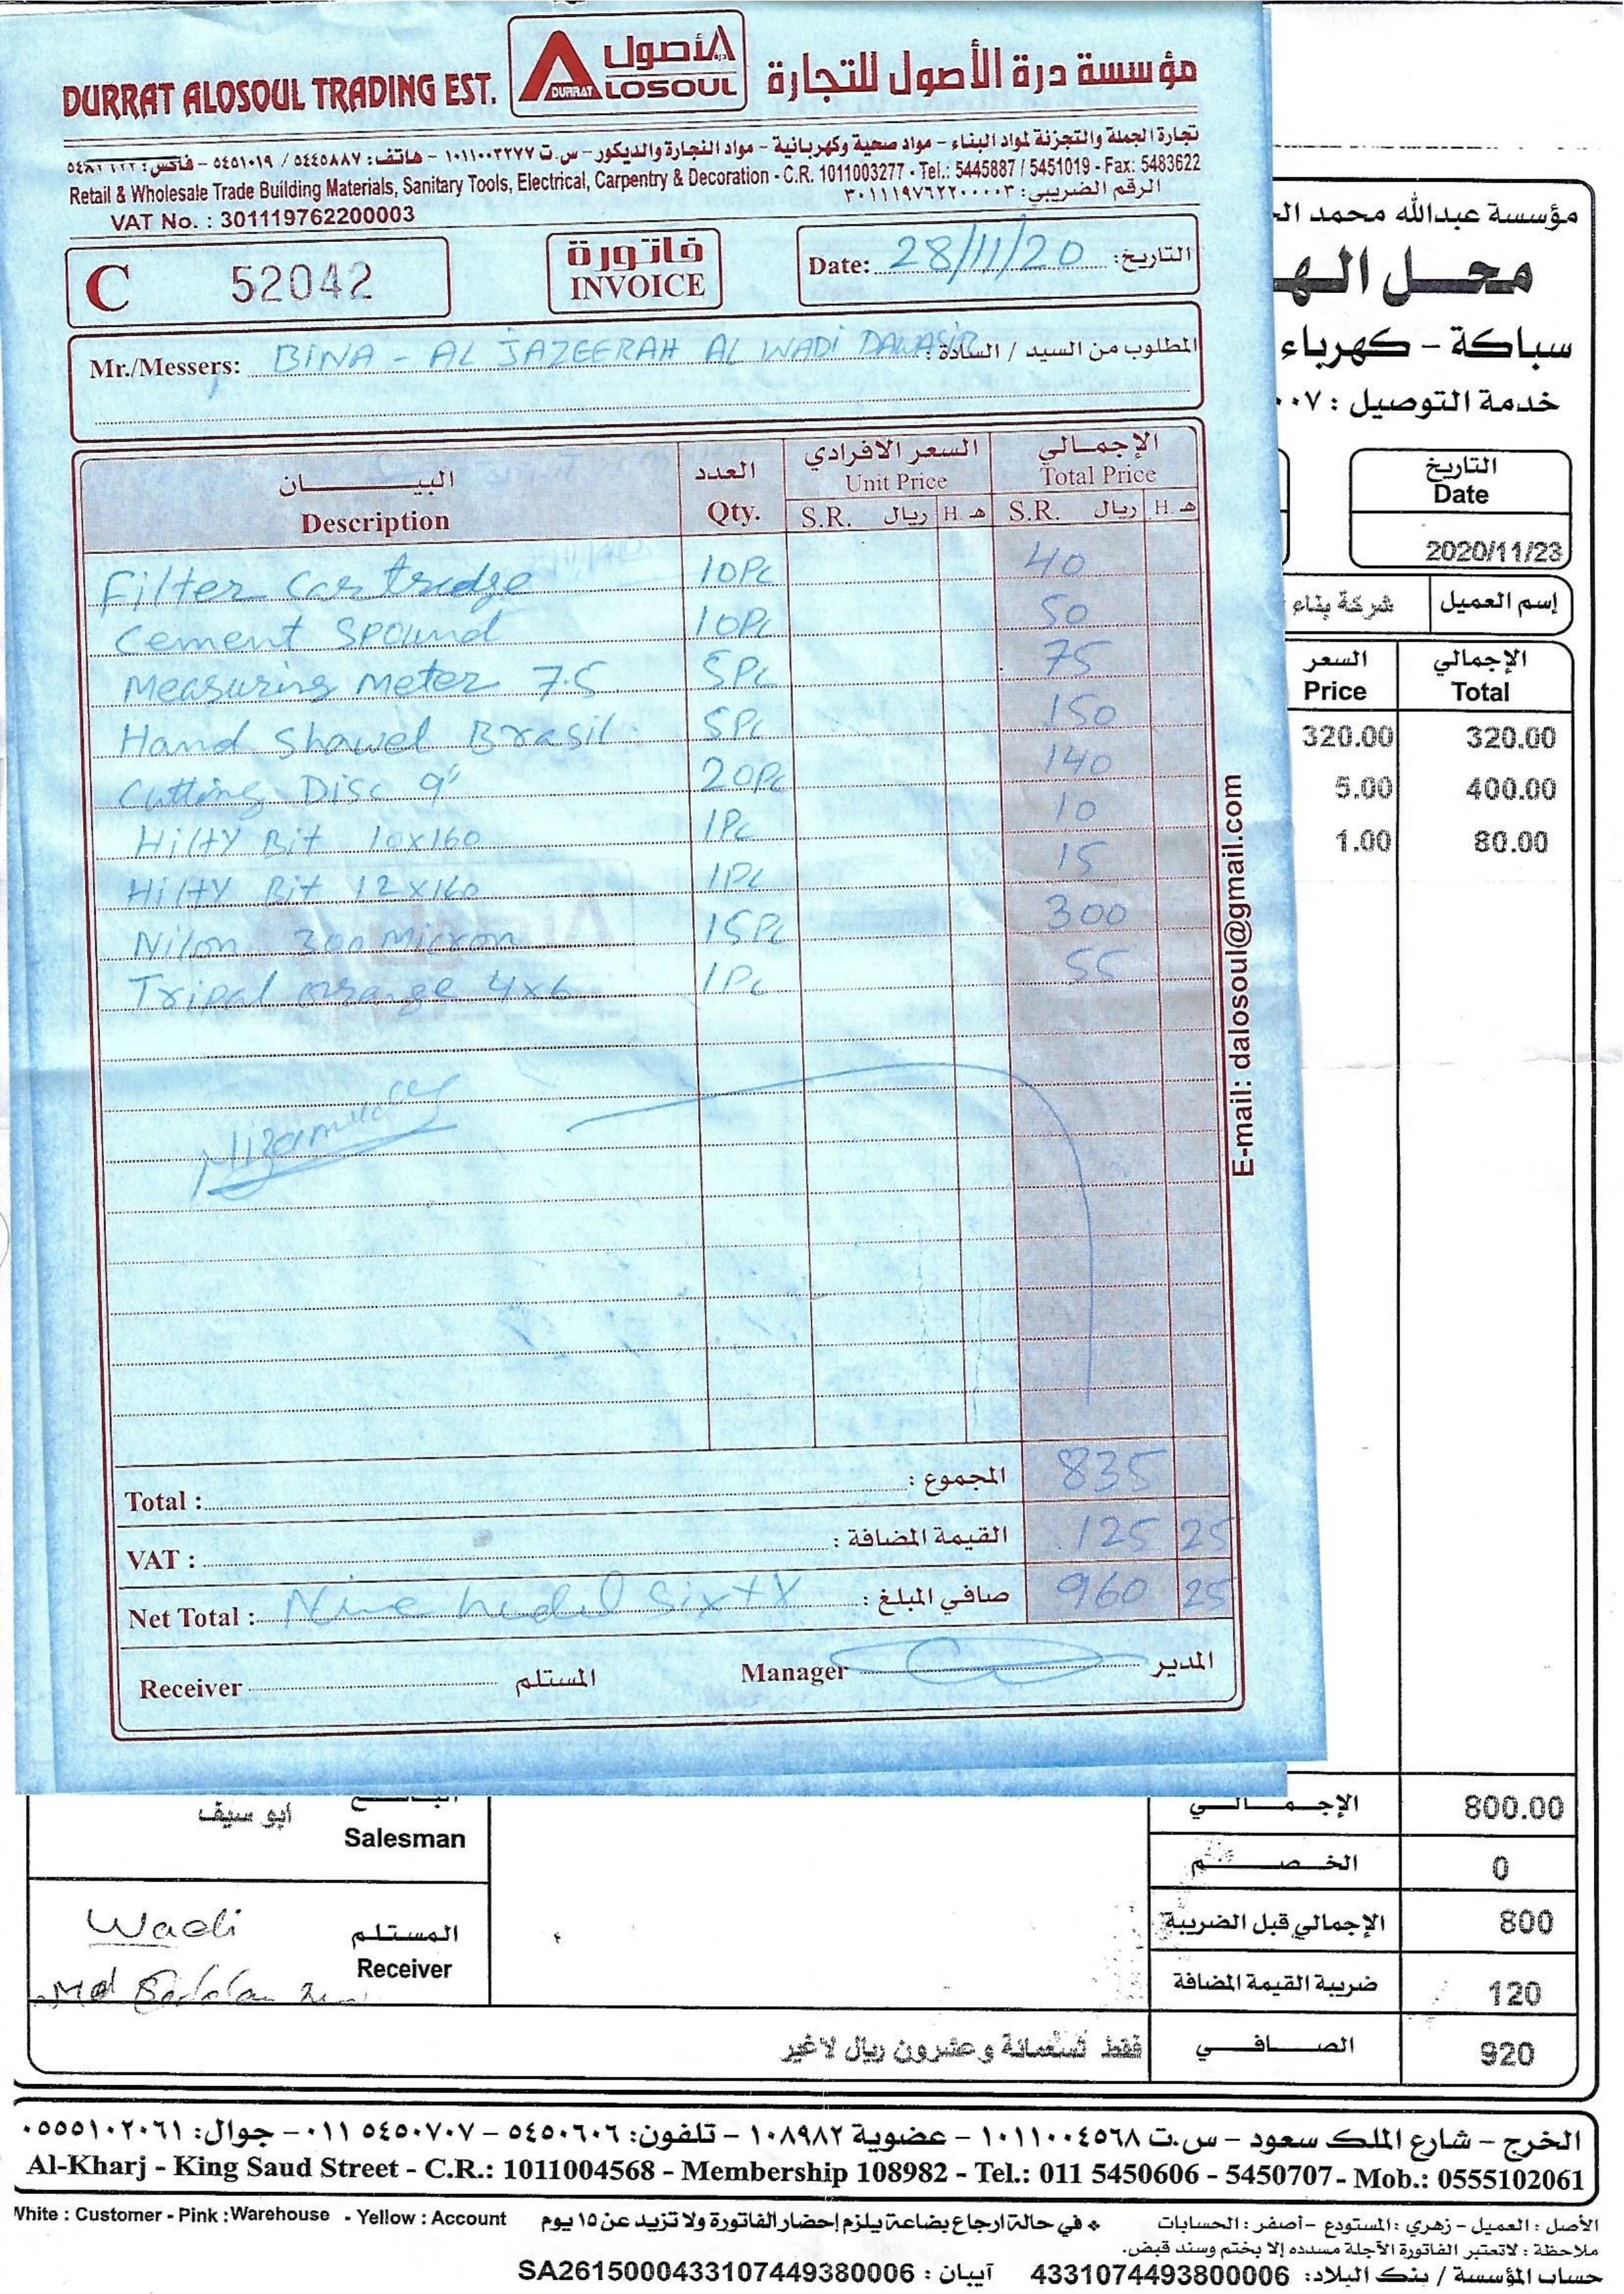 DURRAT ALOSOUL TRADING EST.
الأصول
درة
DURRAT ALOSOUL
مؤسسة درة الأصول للتجارة
تجارة الجملة والتجزئة لمواد البناء - مواد صحية وكهربائية - مواد النجارة والديكور - س.ت ١٠١١٠٠٣٢٧٧ - هاتف: ٥٤٤٥٨٨٧ / ٥٤٥١٠١٩ - فاكس: ٥٤٨٣٦٢٢
Retail & Wholesale Trade Building Materials, Sanitary Tools, Electrical, Carpentry & Decoration - C.R. 1011003277 - Tel.: 5445887 / 5451019 - Fax: 5483622
VAT No. : 301119762200003
الرقم الضريبي: ٣٠١١١٩٧٦٢٢٠٠٠٠٣
C 52042
فاتورة
INVOICE
Date: 28/11/20 التاريخ:
Mr./Messers: BINA - AL JAZEERAH AL WADI DAWASIR المطلوب من السيد / السادة :
البيــــــــان العدد السعر الافرادي الإجمـالي
Description Qty. Unit Price Total Price
S.R. ريال H. هـ S.R. ريال H. هـ
Filter Cartredge 10Pc 40
Cement Spound 10Pc 50
Measuring Meter 7.5 5Pc 75
Hand Shawel Brasil 5Pc 150
Cutting Disc 9" 20Pc 140
Hilty Bit 10x160 1Pc 10
Hilty Bit 12x160 1Pc 15
Nilon 300 Micron 15Pc 300
Tripal orange 4x6 1Pc 55
Total : المجموع : 835
VAT : القيمة المضافة : 125 25
Net Total : Nine hudul sixty صافي المبلغ : 960 25
Receiver المستلم Manager المدير
E-mail: dalosoul@gmail.com
مؤسسة عبدالله محمد
محـــل
سباكة - كهرباء
خدمة التوصيل :
التاريخ
Date
2020/11/23
إسم العميل شركة بناء
السعر الإجمالي
Price Total
320.00 320.00
5.00 400.00
1.00 80.00
ابو سيف
Salesman
الإجـمــالــي 800.00
الخــصــــم 0
Wadi المستلم
Receiver
Md
الإجمالي قبل الضريبة 800
ضريبة القيمة المضافة 120
فقط تسعمائة وعشرون ريال لاغير الصـــافـــي 920
الخرج - شارع الملك سعود - س.ت ١٠١١٠٠٤٥٦٨ - عضوية ١٠٨٩٨٢ - تلفون: ٥٤٥٠٦٠٦ - ٥٤٥٠٧٠٧ ٠١١ - جوال: ٠٥٥٥١٠٢٠٦١
Al-Kharj - King Saud Street - C.R.: 1011004568 - Membership 108982 - Tel.: 011 5450606 - 5450707 - Mob.: 0555102061
White : Customer - Pink : Warehouse - Yellow : Account
في حالة ارجاع بضاعة يلزم إحضار الفاتورة ولا تزيد عن ١٥ يوم
الأصل : العميل - زهري : المستودع - أصفر : الحسابات
ملاحظة : لا تعتبر الفاتورة الآجلة مسدده إلا بختم وسند قبض.
حساب المؤسسة / بنك البلاد: 4331074493800006 آيبان : SA2615000433107449380006